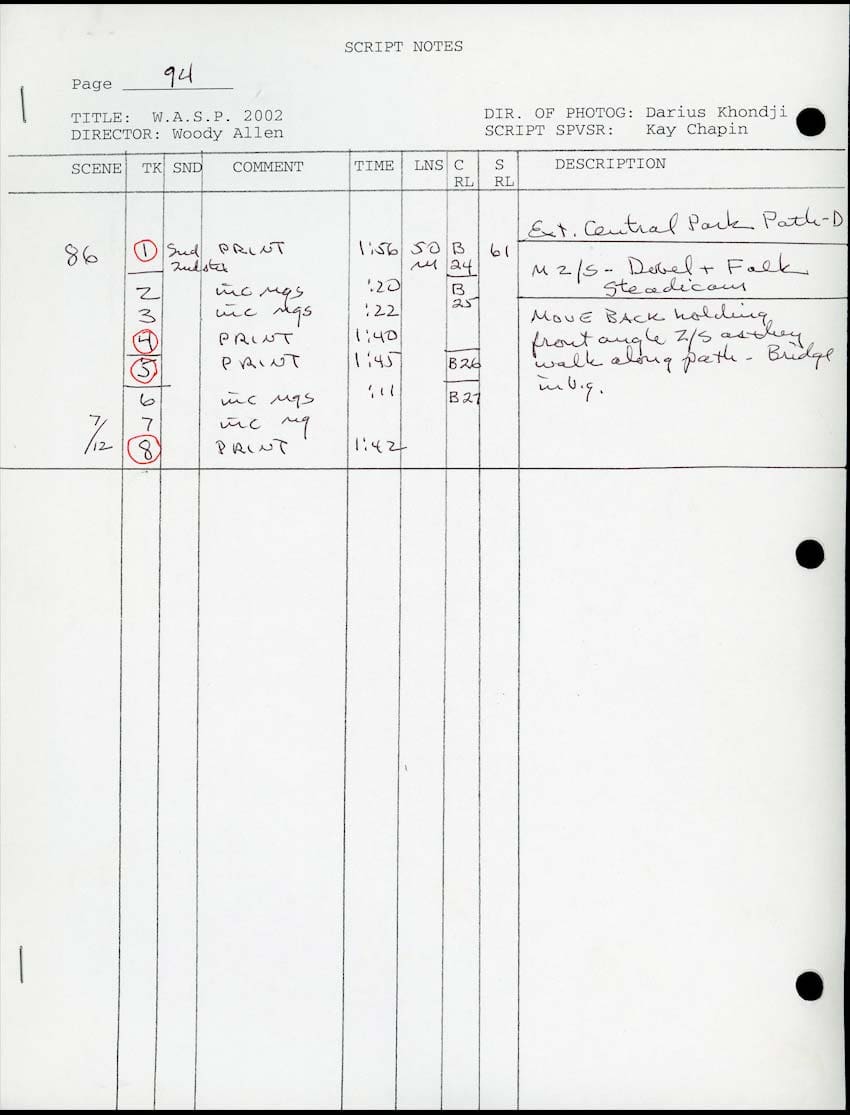 SCRIPT NOTES
Page 94
TITLE: W.A.S.P. 2002 DIR. OF PHOTOG: Darius Khondji
DIRECTOR: Woody Allen SCRIPT SPVSR: Kay Chapin
SCENE TK SND COMMENT TIME LNS C RL S RL DESCRIPTION
Ext. Central Park Path-D
86 1 Snd PRINT 1:56 50 B 24 61
M 2/S - Dobel + Falk
Steadicam
2 inc ngs :20 B 25
3 inc ngs :22 MOVE BACK holding
4 PRINT 1:40 front angle 2/S as they
5 PRINT 1:45 B26 walk along path - Bridge
in b.g.
6 inc ngs :11 B27
7 inc ng
7/12 8 PRINT 1:42